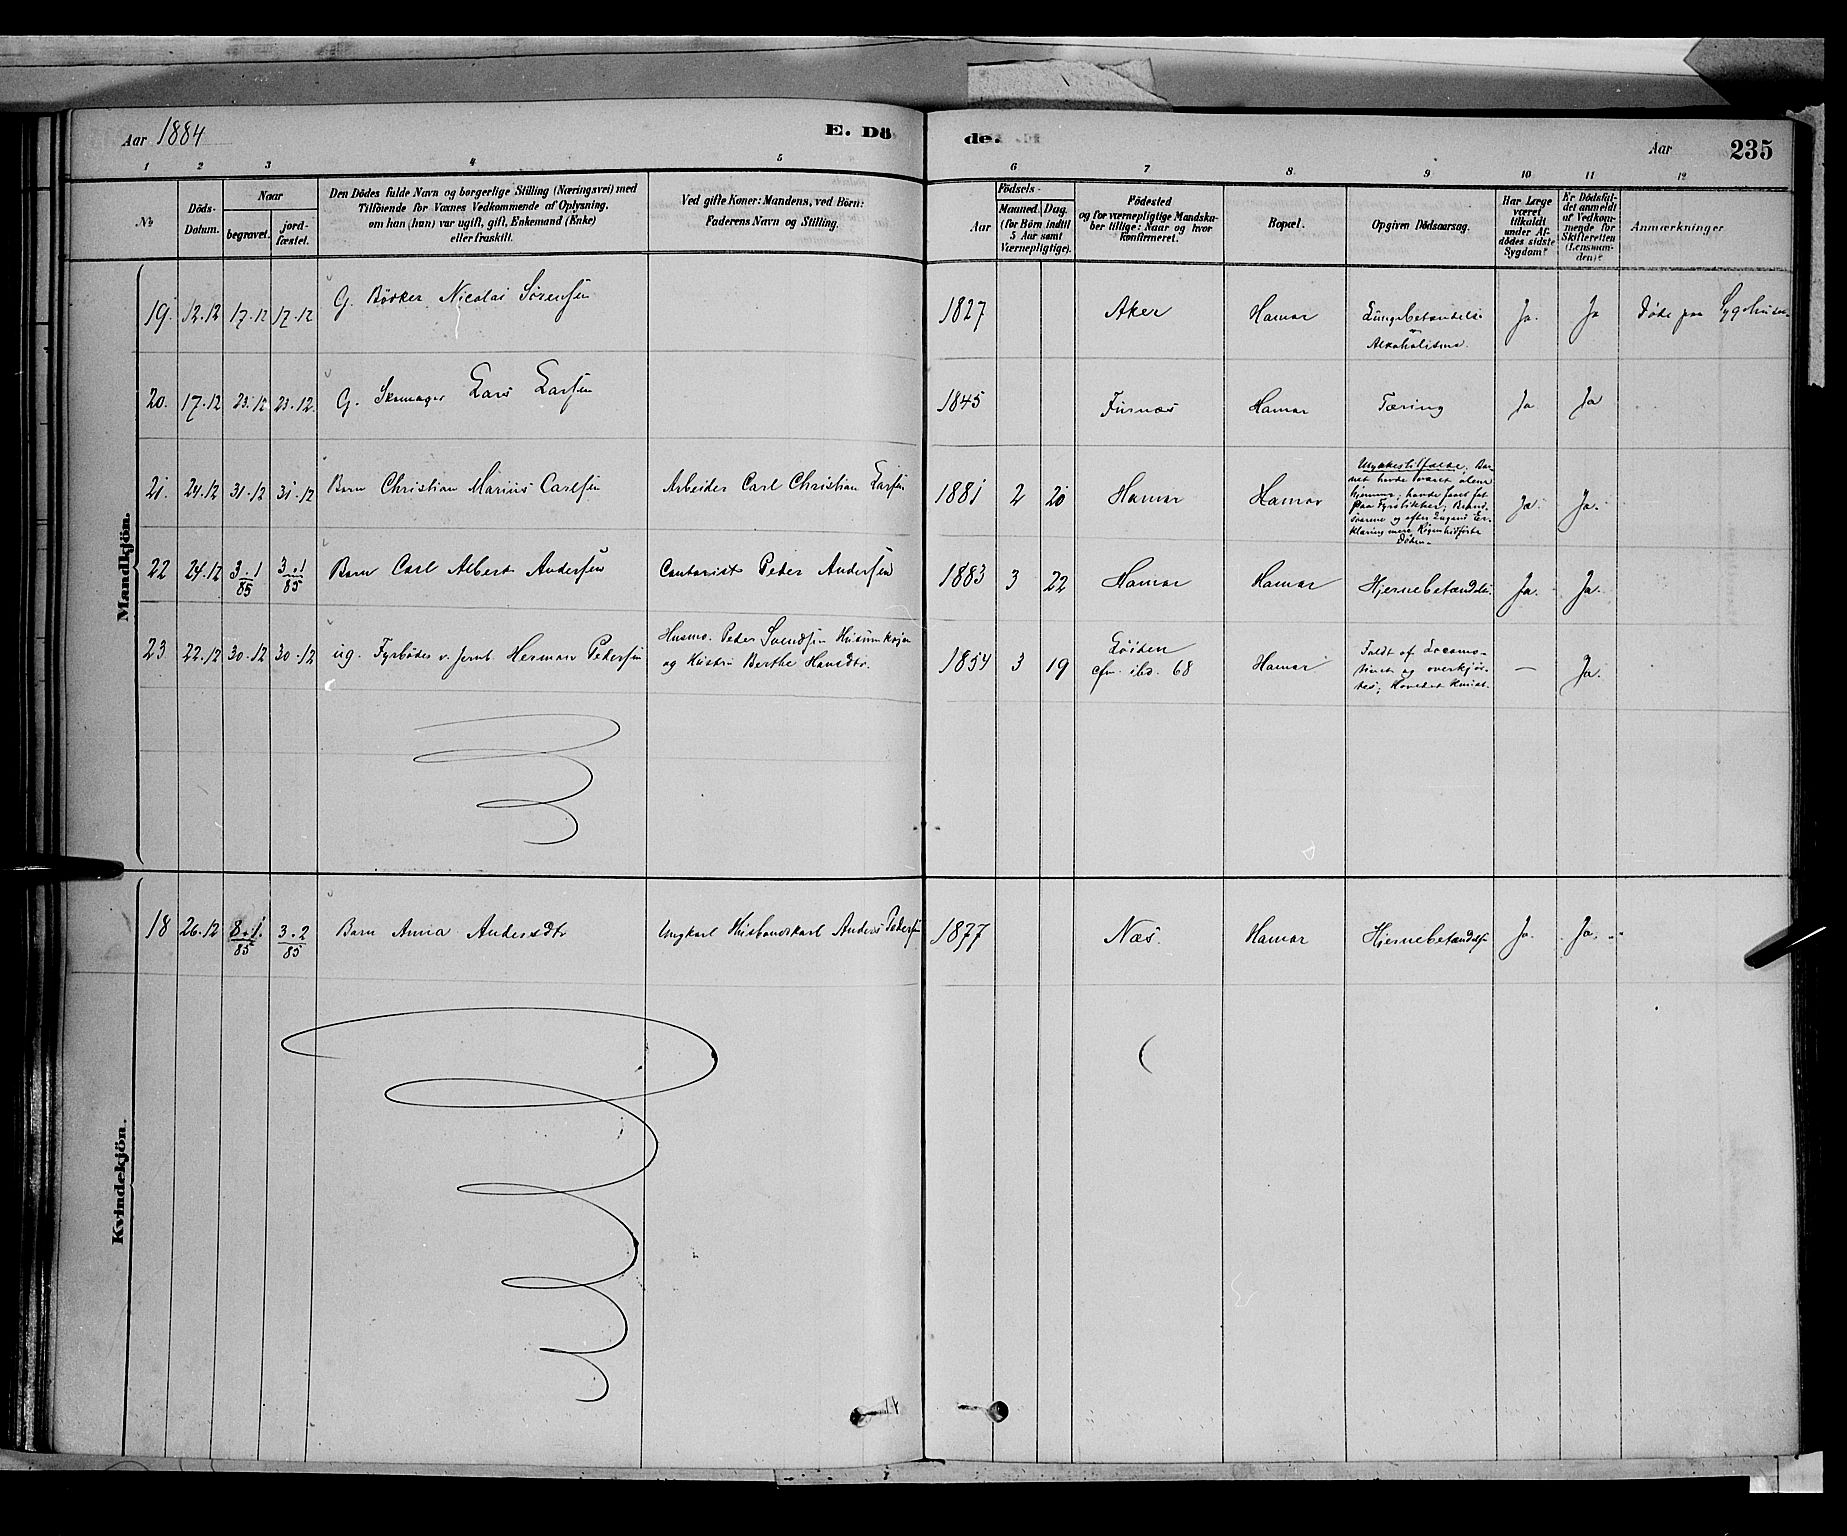 Aar 1884
E. Dö
de.
Aar
235
1 2 3 4 5 6 7 8 9 10 11 12
No
Döds-
Datum.
Naar
begravet.
jord-
fæstet.
Den Dödes fulde Navn og borgerlige Stilling (Næringsvei) med
Tilföiende for Voxnes Vedkommende af Oplysning,
om han (hun) var ugift, gift, Enkemand (Enke)
eller fraskilt.
Ved gifte Koner: Mandens, ved Börn:
Faderens Navn og Stilling.
Födsels-
Aar
Maaned. Dag.
(for Börn indtil
5 Aar samt
Værnepligtige).
Födested
og for værnepligtige Mandska-
ber tillige: Naar og hvor
konfirmeret.
Bopæl.
Opgiven Dödsaarsag.
Har Læge
været
tilkaldt
under Af-
dödes sidste
Sygdom?
Er Dödsfal-
det anmeldt
af Vedkom-
mende for
Skifteretten
(Lensman-
den)?
Anmærkninger
Mandkjön.
19. 12.12 17.12 17.12 G. Bödker Nicolai Sörensen 1827 Aker Hamar Lungebetændelse
Alkoholisme. Ja. Ja Döde paa Sygehuset
20. 17.12 23.12 23.12. G. Skomager Lars Larsen 1845 Furnæs Hamar Tæring Ja Ja
21. 24.12 31.12 31.12 Barn Christian Marius Carlsen Arbeider Carl Christian Larsen 1881 2 20 Hamar Hamar Ulykkestilfælde; Bar-
net havde været alene
hjemme; havde faaet fat
paa Fyrstikker; Brand-
saarene og efter Lægens Er-
klæring mere Rögen hidförte
Döden. Ja. Ja.
22 24.12 3.1/85 3.1/85 Barn Carl Albert Andersen Contorist Peder Andersen 1883 3 22 Hamar Hamar Hjernebetændelse Ja. Ja.
23 22.12 30.12 30.12 ug. Fyrböder v. Jernb. Herman Pedersen Husmd. Peder Svendsen
og Hustru Berthe Hansdtr. 1854 3 19 Löiten
cfm. ibd. 68 Hamar Faldt af Locomo-
tivet og overkjör-
tes; Hovedet knust. — Ja.
Kvindekjön.
18 26.12 8.1./85 3.2/85 Barn Anna Andersdtr Ungkarl Husbondskarl Anders Pedersen 1877 Næs. Hamar Hjernebetændelse Ja. Ja.